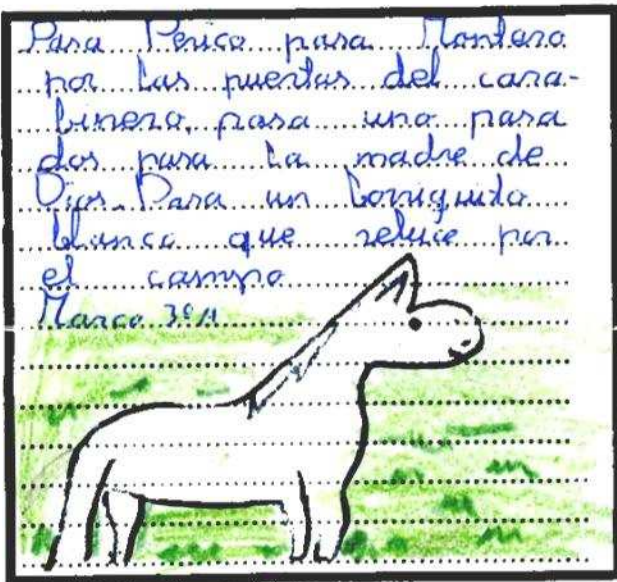 Pasa Perico pasa Montero
por las puertas del cara-
binero, pasa uno pasa
dos pasa la madre de
Dios. Pasa un borriquito
blanco que reluce por
el campo
Marco 3º A